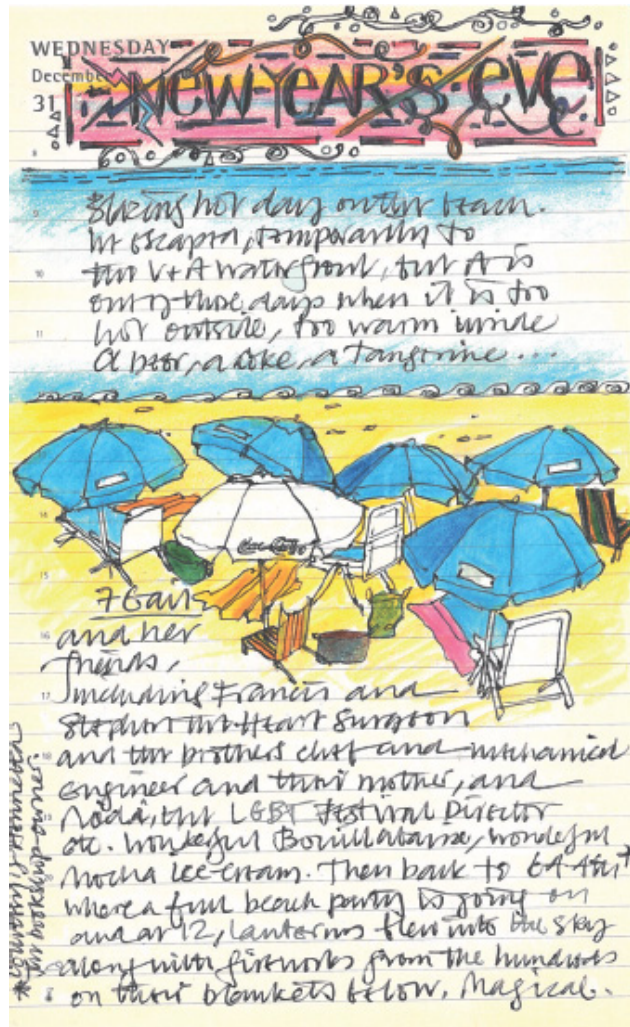 WEDNESDAY
December
31
NEW YEAR'S EVE
8
9
Blazing hot day on the beach.
We escaped, temporarily to
10
the V+A Waterfront, but it is
one of those days when it is too
11
hot outside, too warm inside
A beer, a coke, a tangerine...
Coca-Cola
14
15
7 Gail
16
and her
friends,
17
including Francis and
Stephen the Heart Surgeon
18
and the brothers chef and mechanical
engineer and their mother, and
19
the LGBT Festival Director
etc. Wonderful Bouillabaisse, wonderful
Mocha Ice-cream. Then back to
where a full beach party is going on
and at 12, lanterns flew into the sky
along with fireworks from the hundreds
on their blankets below. Magical.
* Courtesy of Henrietta
our bookshop owner.